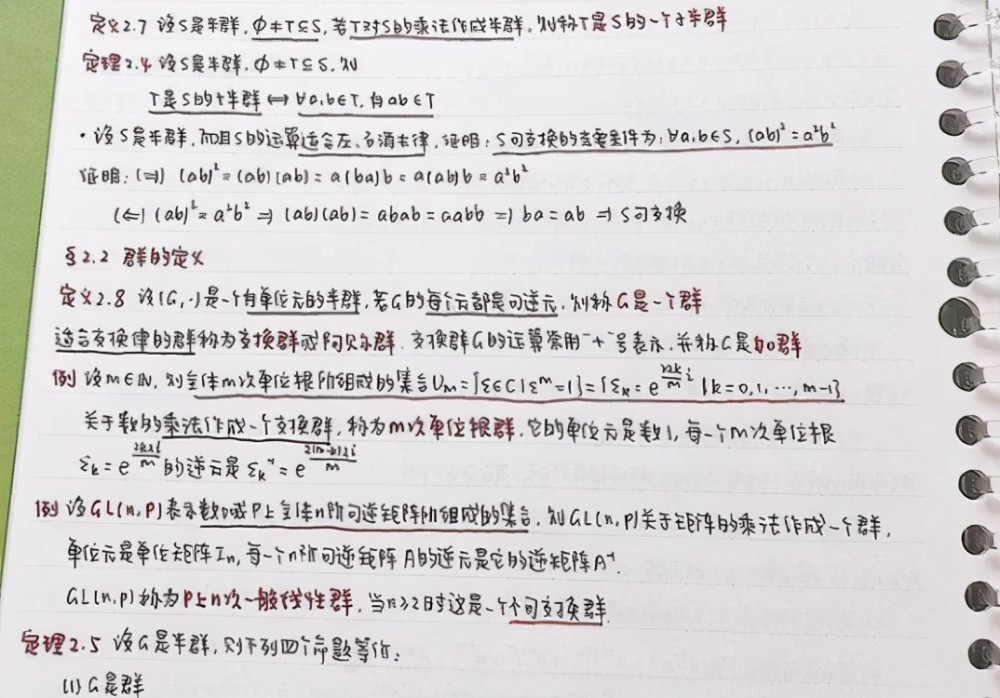 定义2.7 设S是半群,∅≠T⊆S,若T对S的乘法作成半群,则称T是S的一个子半群
定理2.4 设S是半群,∅≠T⊆S,则
T是S的子半群 ⟺ ∀a,b∈T,有ab∈T
·设S是半群,而且S的运算适合左、右消去律,证明:S可交换的充要条件为:∀a,b∈S,(ab)²=a²b²
证明:(⇒) (ab)²=(ab)(ab)=a(ba)b=a(ab)b=a²b²
(⇐) (ab)²=a²b² ⇒ (ab)(ab)=abab=aabb ⇒ ba=ab ⇒ S可交换
§2.2 群的定义
定义2.8 设(G,·)是一个有单位元的半群,若G的每个元都是可逆元,则称G是一个群
适合交换律的群称为交换群或阿贝尔群.交换群G的运算常用"+"号表示,并称G是加群
例 设m∈ℕ,则全体m次单位根所组成的集合Uₘ={ε∈ℂ|εᵐ=1}={εₖ=e^{2kπi/m}|k=0,1,…,m-1}
关于数的乘法作成一个交换群,称为m次单位根群.它的单位元是数1,每一个m次单位根
εₖ=e^{2kπi/m}的逆元是εₖ⁻¹=e^{2(m-k)πi/m}
例 设GL(n,P)表示数域P上全体n阶可逆矩阵所组成的集合,则GL(n,P)关于矩阵的乘法作成一个群,
单位元是单位矩阵Iₙ,每一个n阶可逆矩阵A的逆元是它的逆矩阵A⁻¹
GL(n,P)称为P上n次一般线性群,当n≥2时这是一个不可交换群.
定理2.5 设G是半群,则下列四个命题等价:
(1) G是群